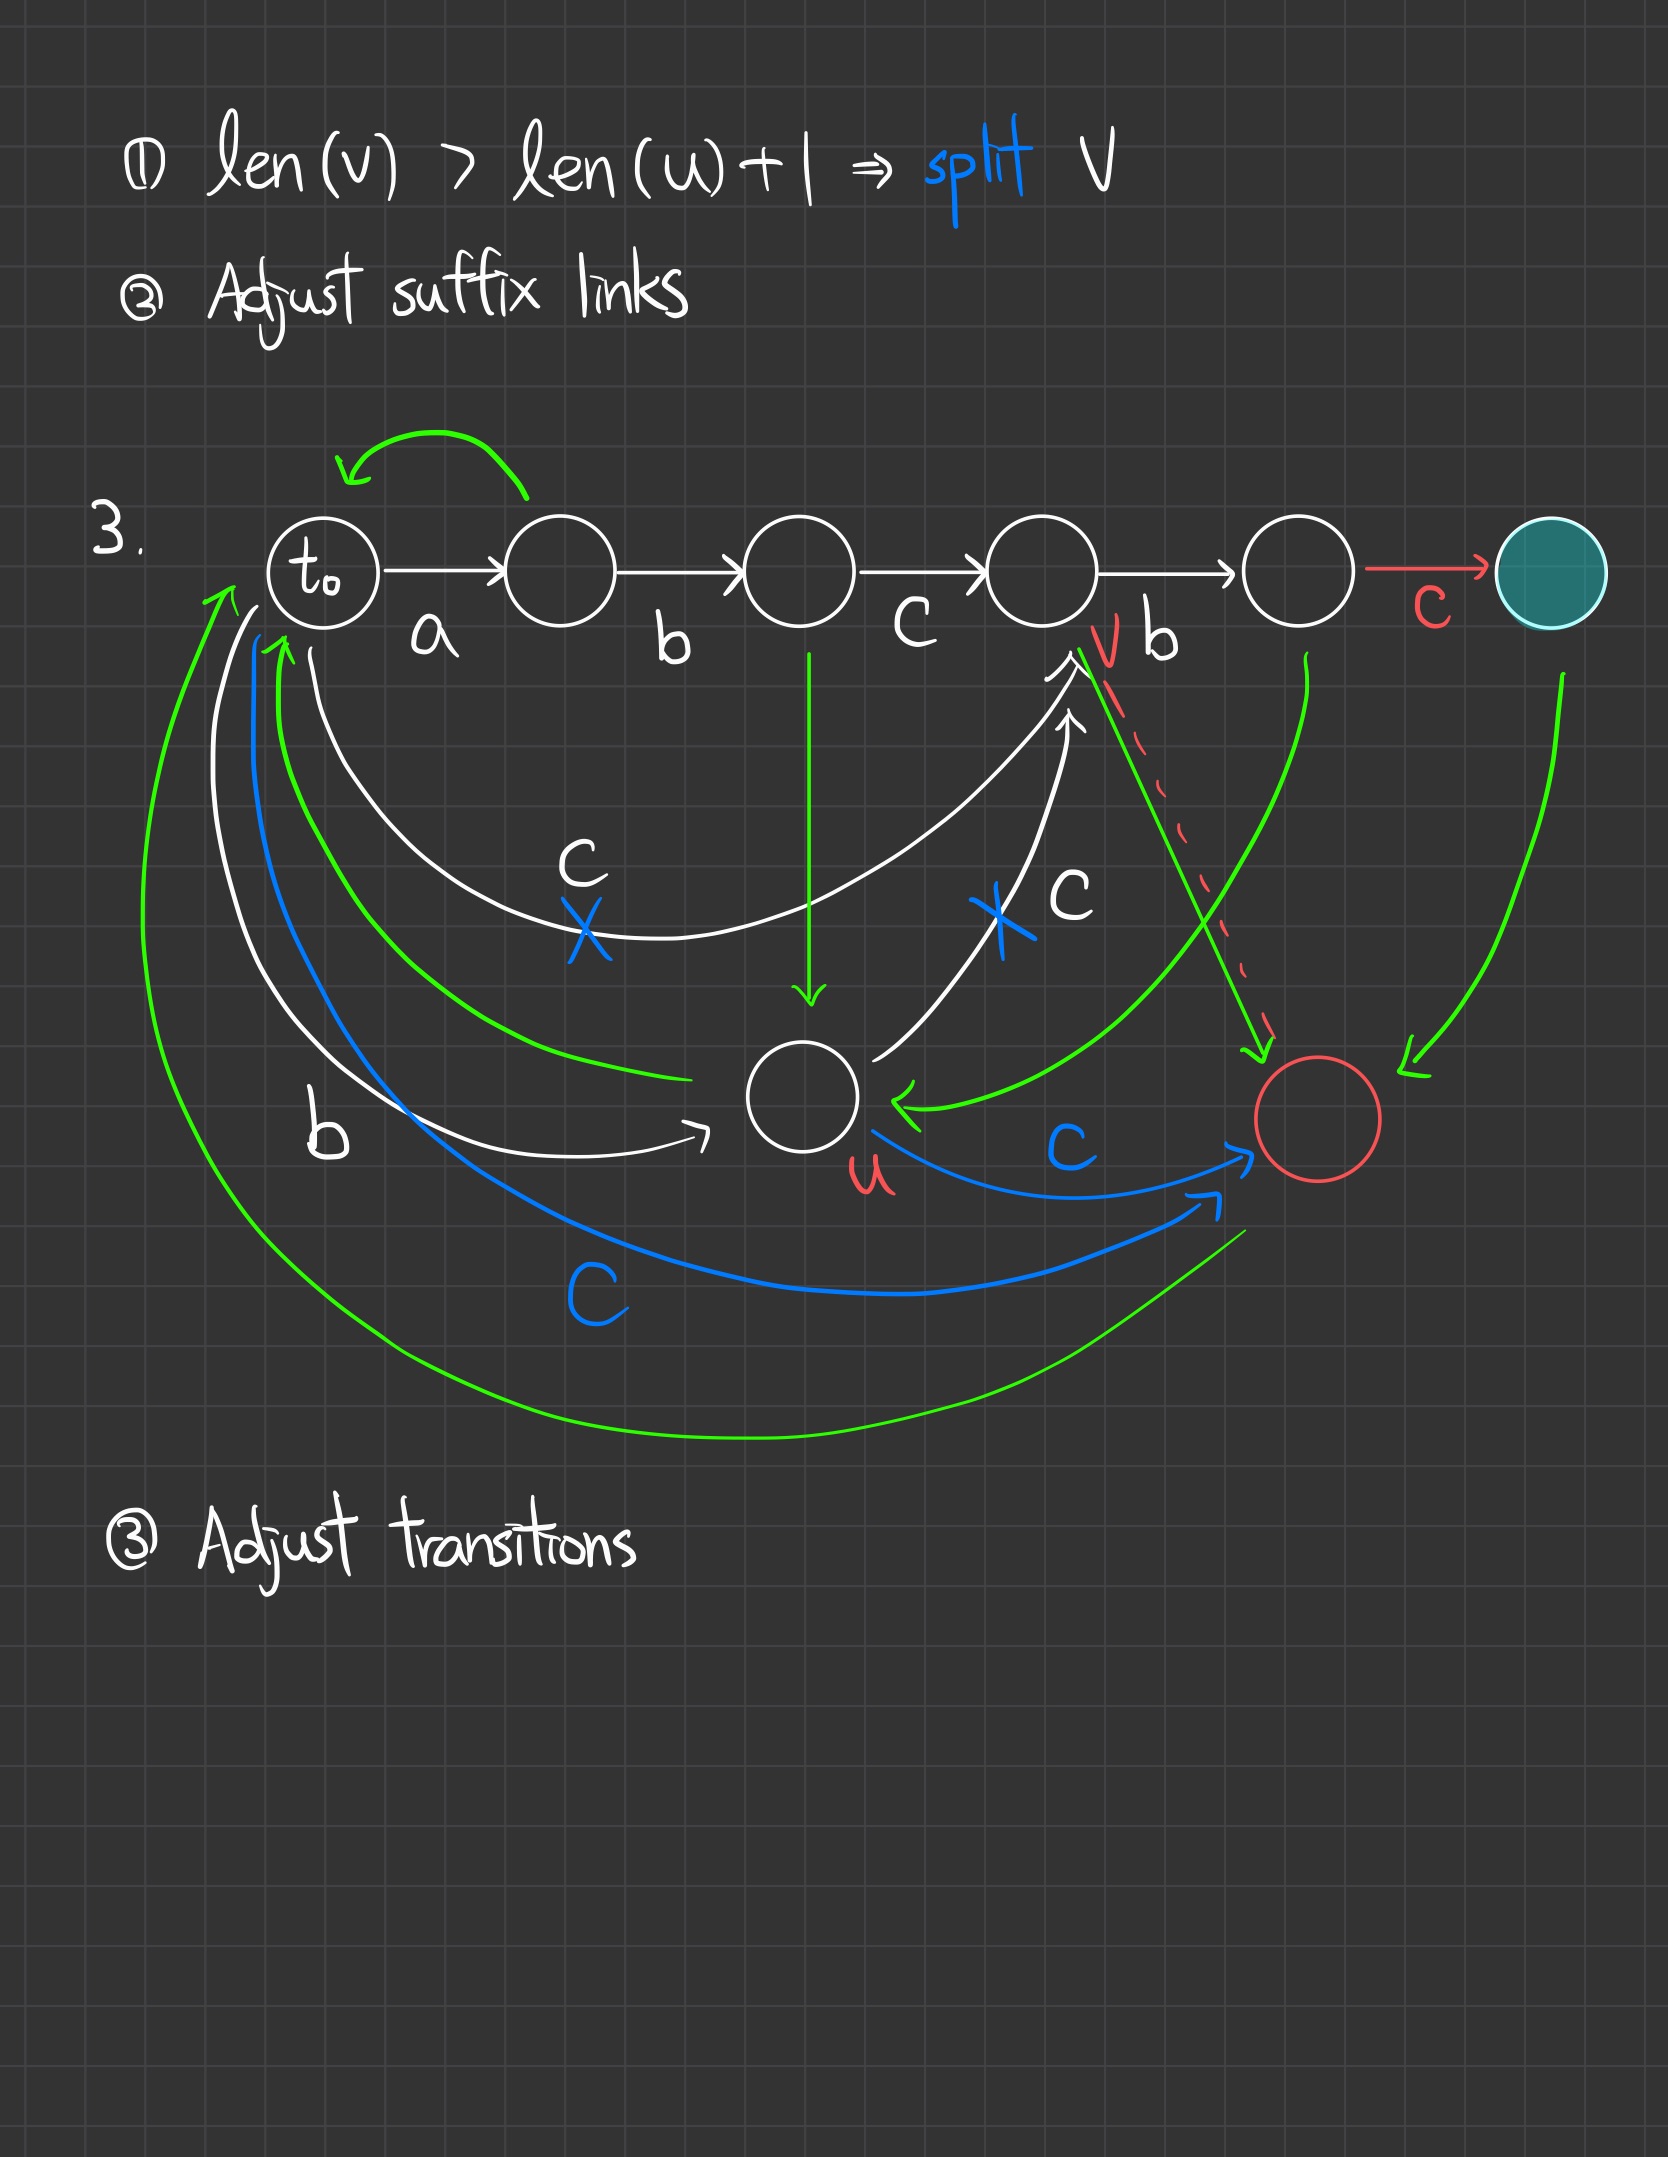 ① len(v) > len(u)+1 ⇒ split V
② Adjust suffix links
3.
t₀
a
b
c
v
b
c
c
c
b
u
c
c
③ Adjust transitions